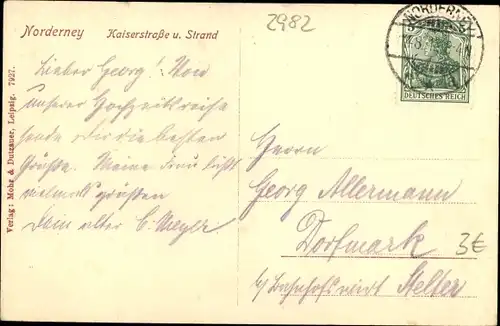 2982
Norderney Kaiserstraße u. Strand
NORDERNEY
DEUTSCHES REICH
Lieber Georg! Von
unserer Hochzeitsreise
sende dir die besten
Grüße. Meine Frau läßt
vielmals grüßen
Dein alter C. Meyer
Herrn
Georg Allermann
Dorfmark
b/ Bahnhofswirt Stelter
3€
Verlag: Mohr & Dutzauer, Leipzig. 7927.